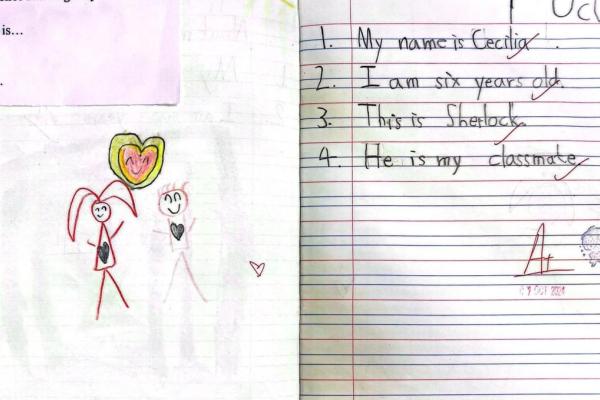 is...
1. My name is Cecilia.
2. I am six years old.
3. This is Sherlock.
4. He is my classmate
A+
OCT 2024